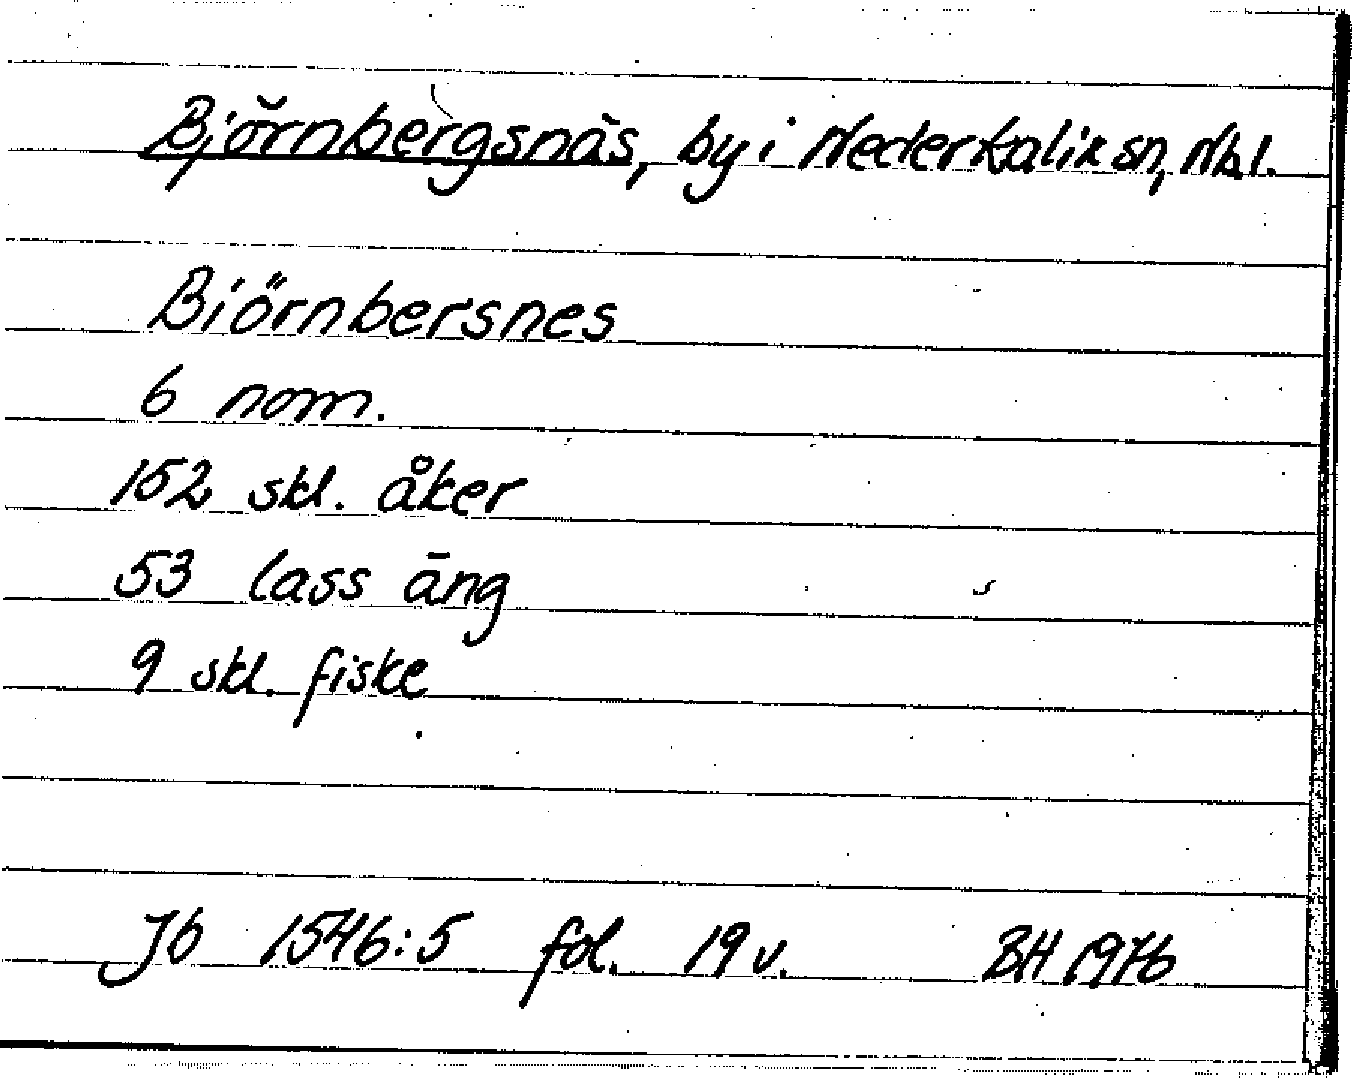 Björnbergsnäs, by i Nederkalix sn, Nbl.
Biörnbersnes
6 nom.
152 skl. åker
53 lass äng
9 skl. fiske
Jb 1546:5 fol. 19 v. BH 1976